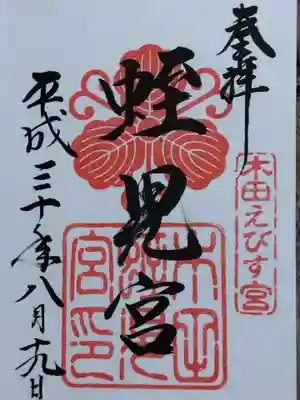 奉拝
木田えびす宮
蛭児宮
平成三十年八月十九日